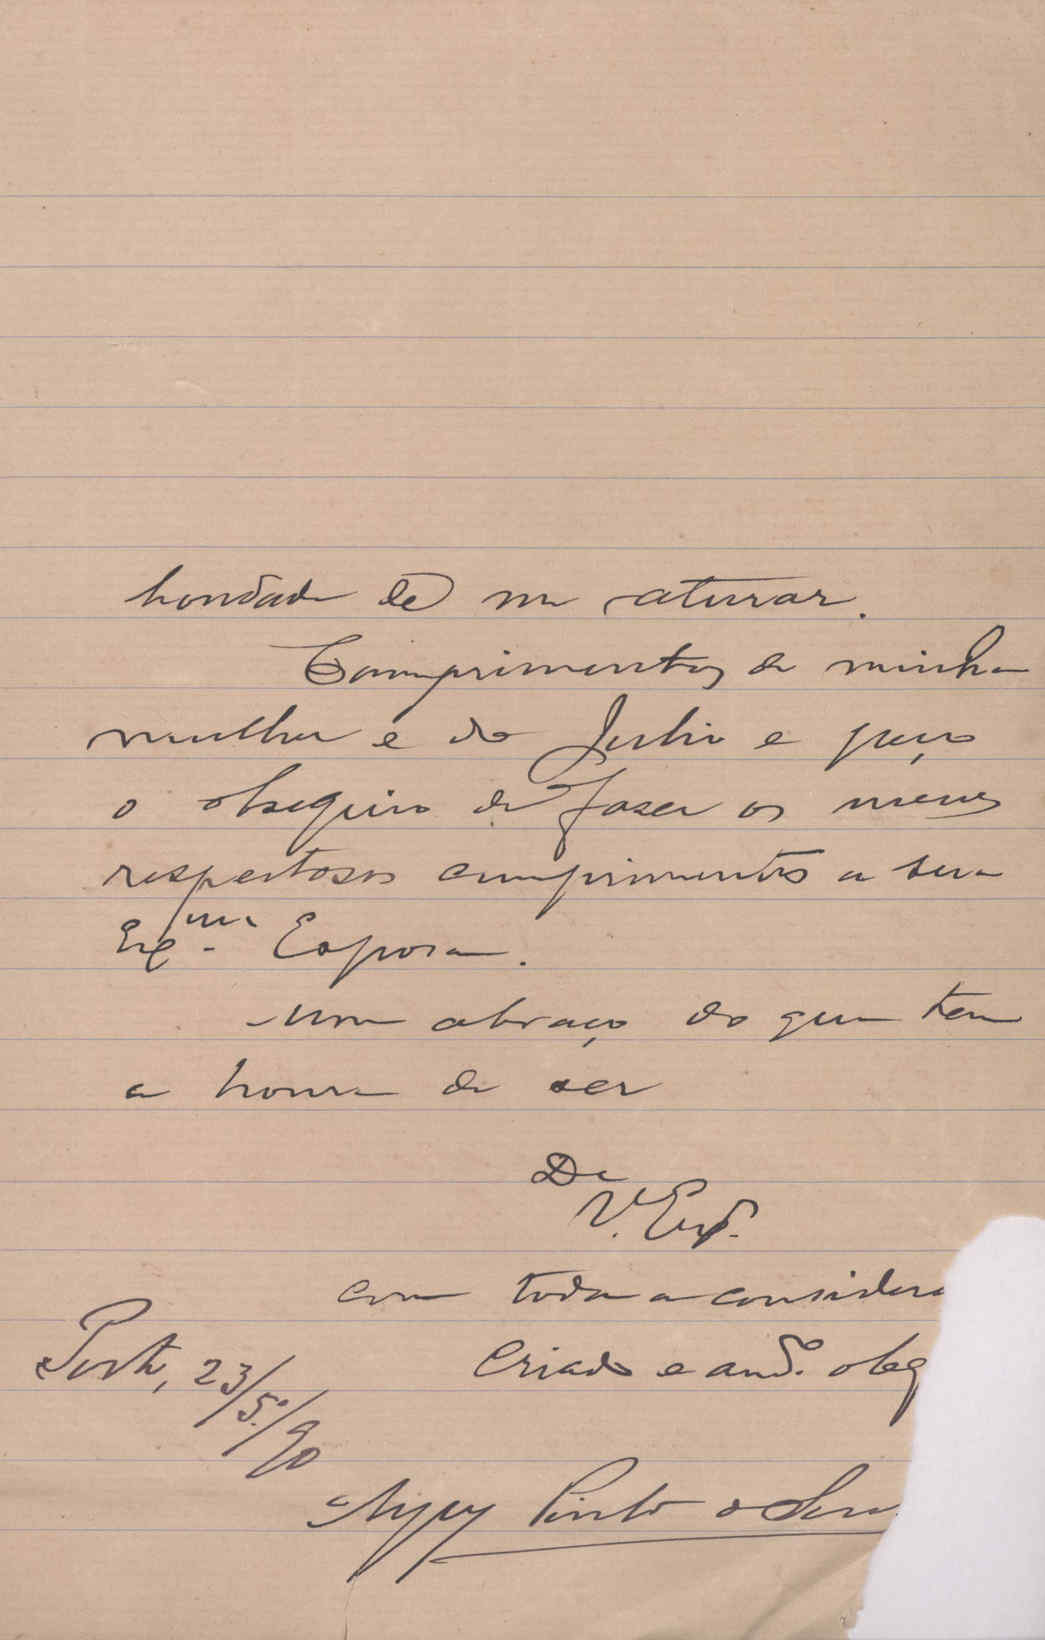 bondade de me aturar.
Comprimentos de minha
mulher e do Julio e peço
o obsequio de faser os meus
respeitosos cumprimentos a sua
Exma. Esposa.
Um abraço do que tem
a honra de ser
De
V. Exª.
com toda a considera
Criado e amº. obg
Porto, 23/5º/90
Pinto